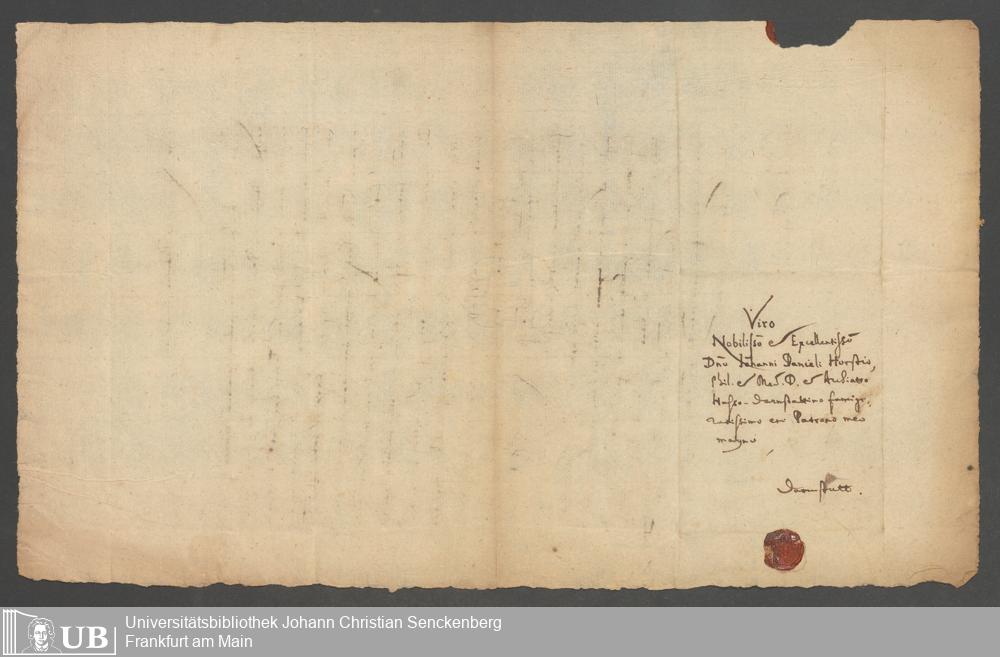 Viro
Nobilissō et Excellentissō
Dn̄o Johanni Danieli Horstio,
Phil. et Med. D. et Archiatro
Hasso-Darmstattino famige-
ratissimo etc Patrono meo
magno
Darmstatt.
UB
Universitätsbibliothek Johann Christian Senckenberg
Frankfurt am Main